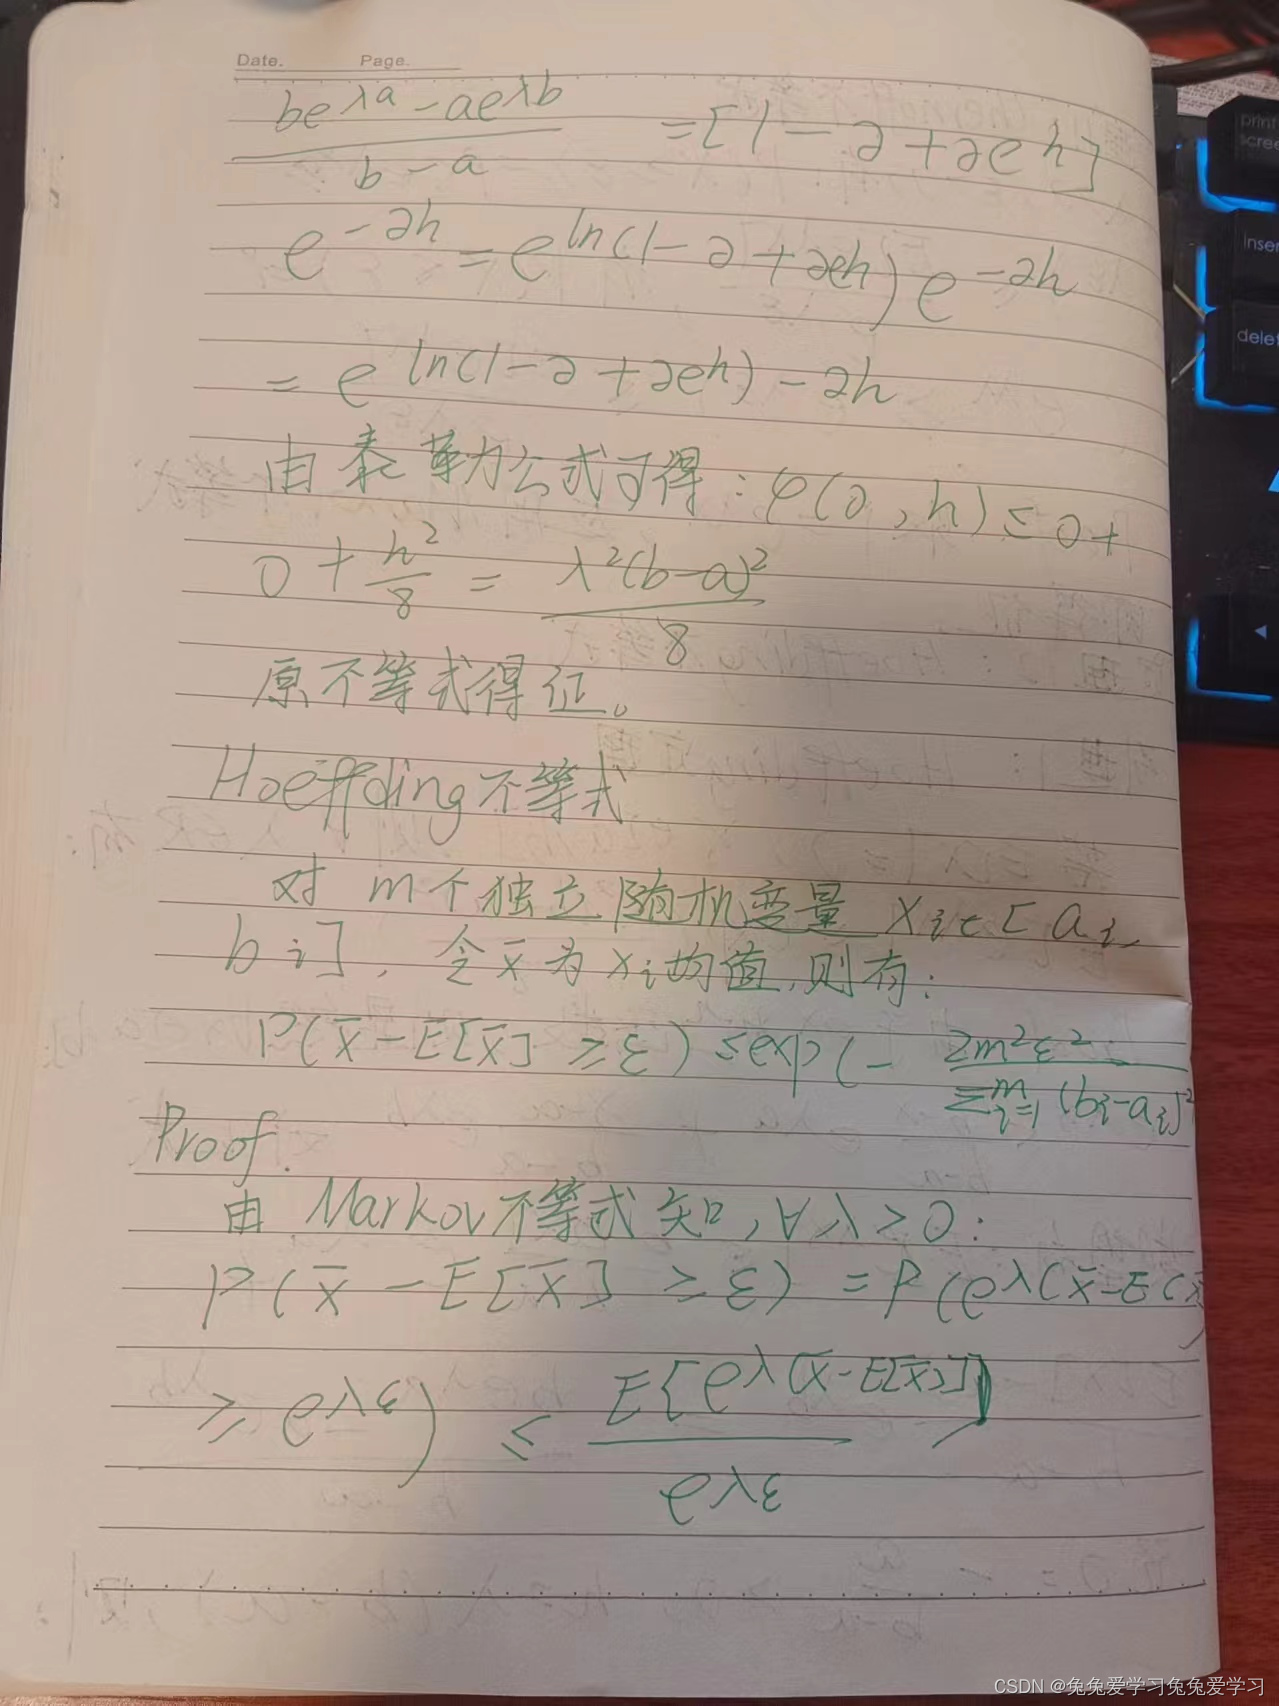 Date. Page.
be^λa - ae^λb / b - a = [1 - ∂ + ∂e^h]
e^-∂h = e^ln(1 - ∂ + ∂e^h) e^-∂h
= e^ln(1 - ∂ + ∂e^h) - ∂h
由泰勒公式可得: φ(∂, h) ≤ 0 +
0 + h²/8 = λ²(b-a)²/8
原不等式得证。
Hoeffding不等式
对 m个独立随机变量 Xi∈[ai,
bi], 令x̄为xi均值,则有:
P(x̄ - E[x̄] ≥ ε) ≤ exp(- 2m²ε² / Σ^m_i=1 (bi-ai)²
Proof.
由 Markov不等式知, ∀λ>0:
P(x̄ - E[x̄] ≥ ε) = P(e^λ(x̄-E(x̄)
≥ e^λε) ≤ E[e^λ(x̄-E[x̄])] / e^λε
print
scree
inser
delet
CSDN @兔兔爱学习兔兔爱学习